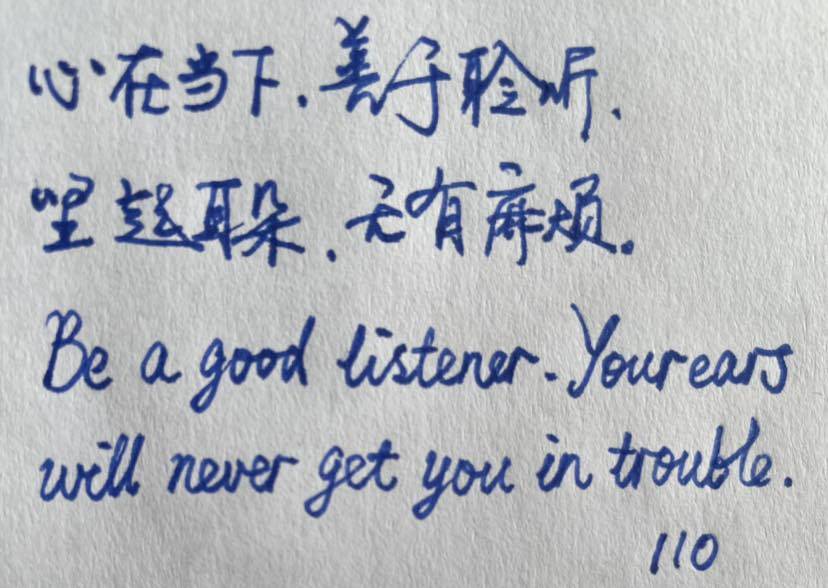 心在当下.善于聆听.
竖起耳朵.无有麻烦.
Be a good listener. Your ears
will never get you in trouble.
110